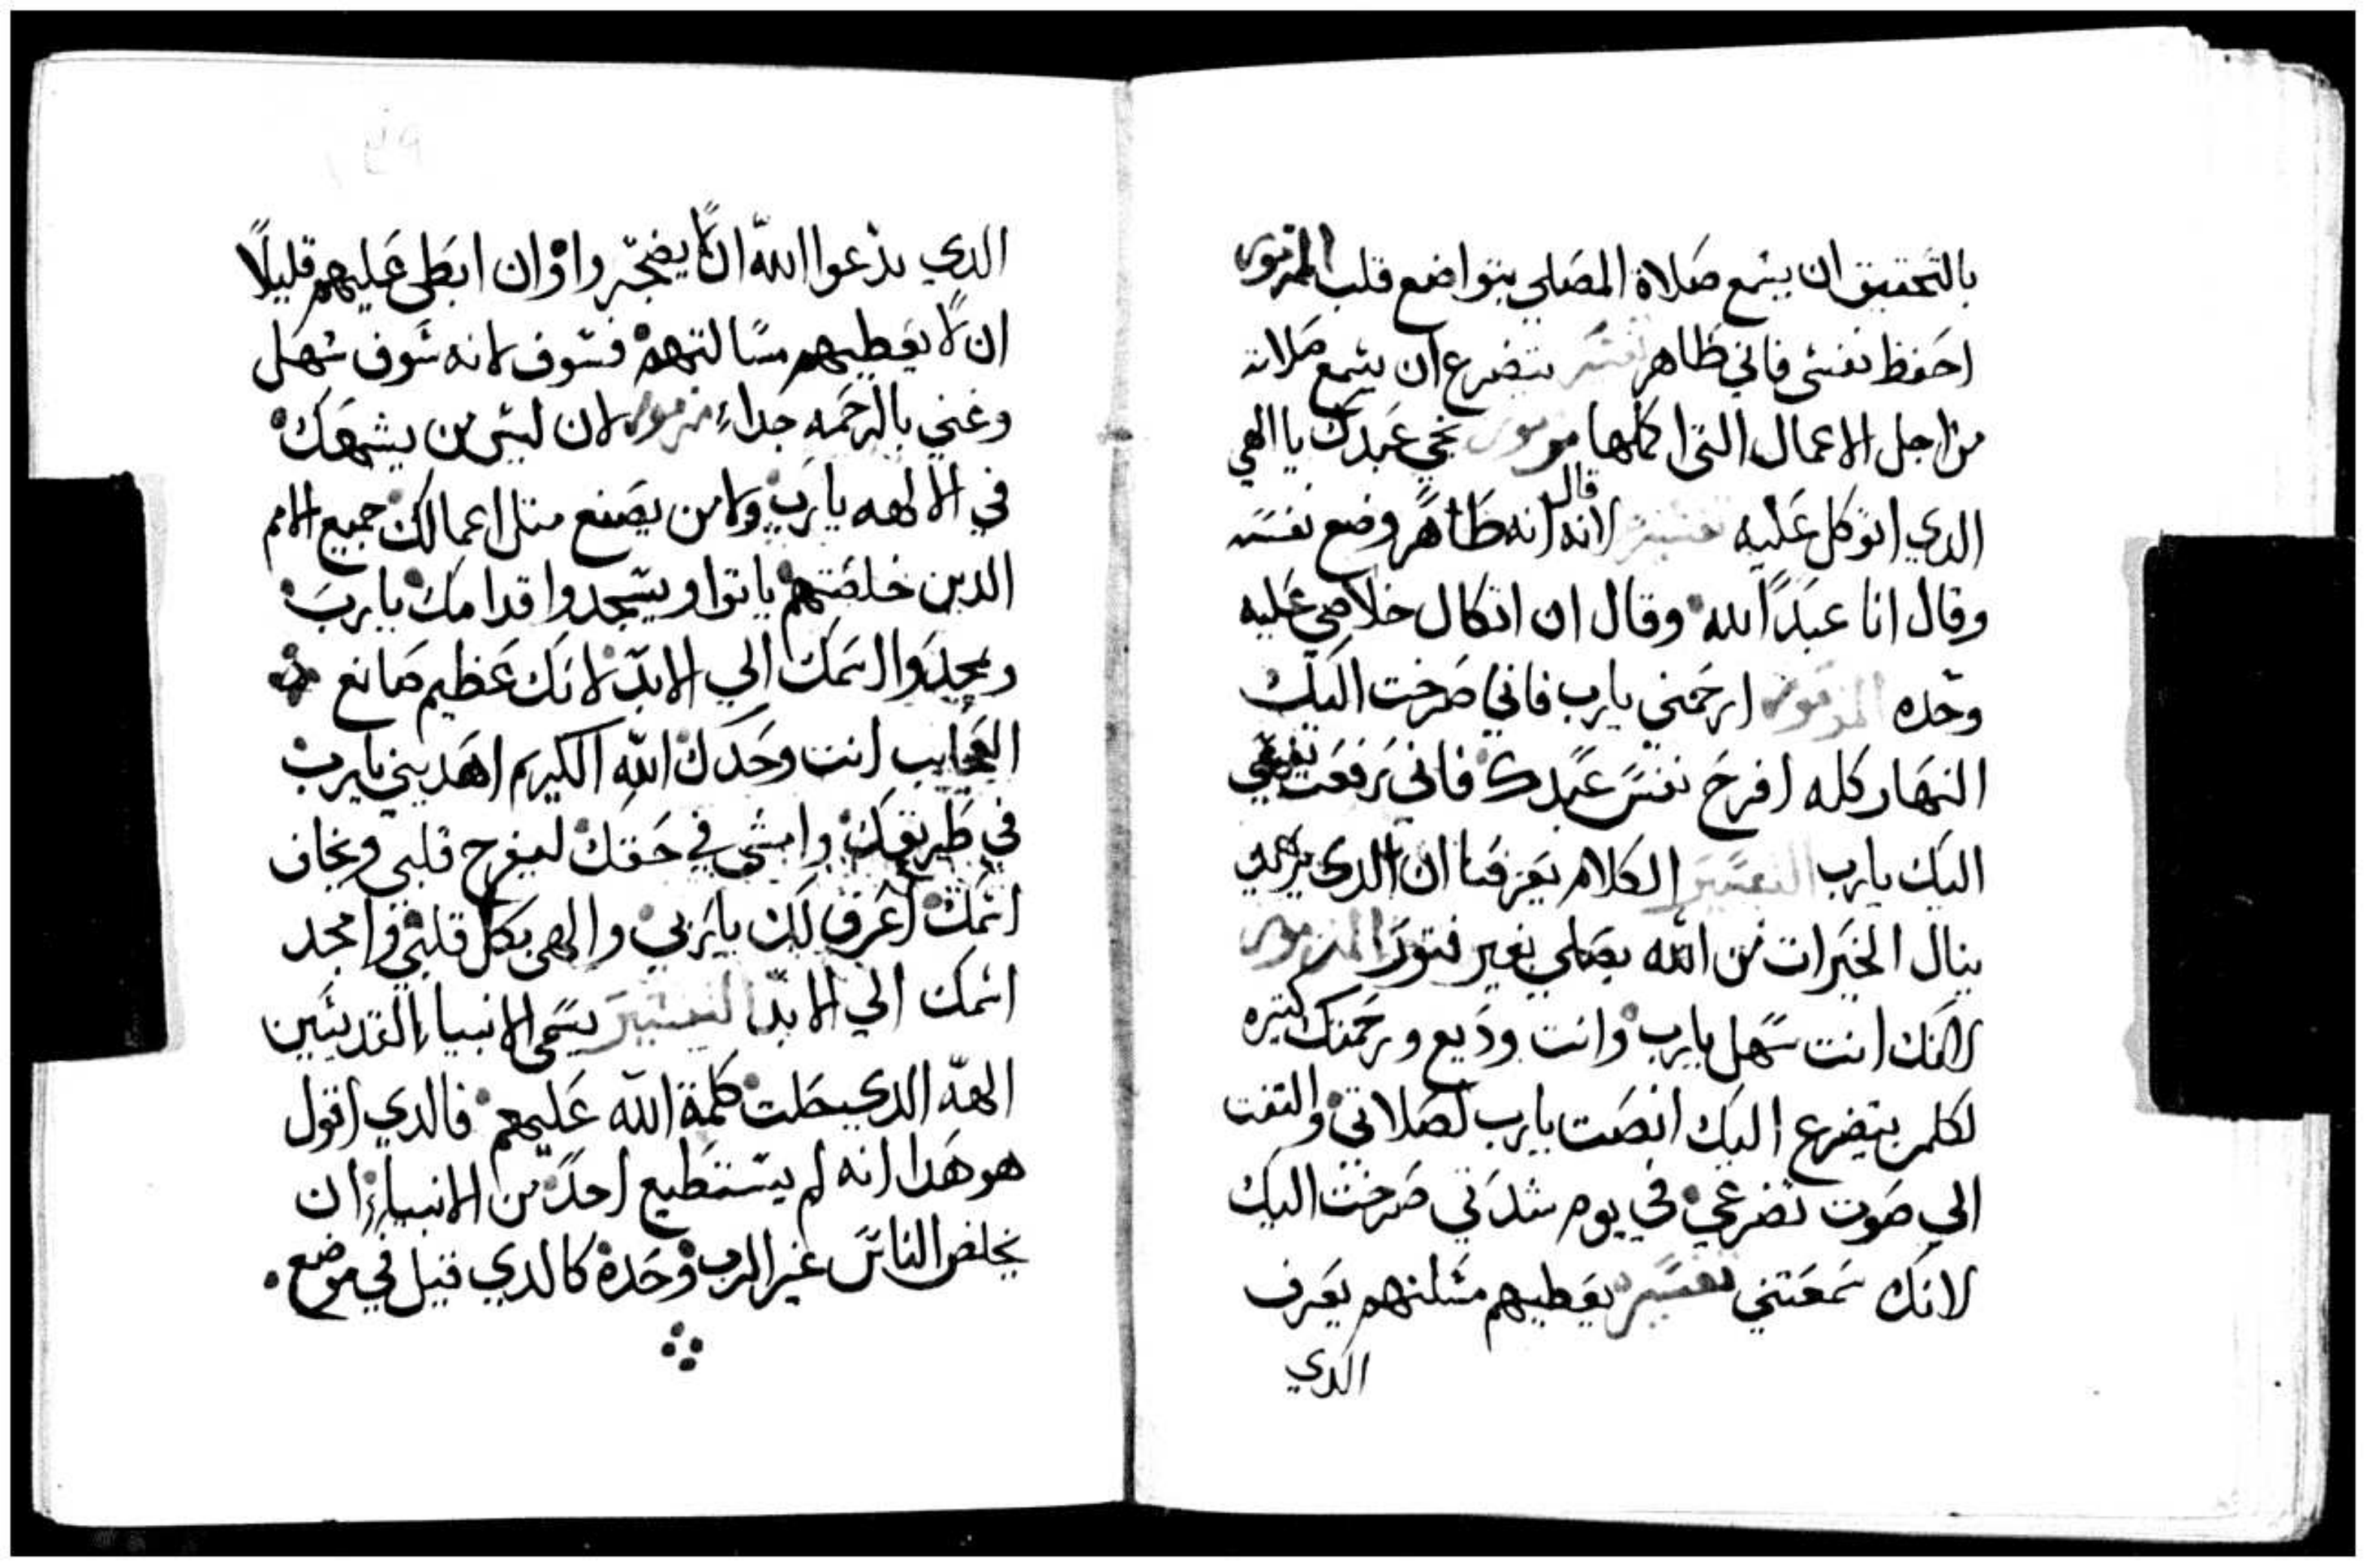 بالتحقيق ان يسمع صلاة المصلي بتواضع قلب المزمور
احفظ نفسي فاني طاهر تفسير بتضرع ان يسمع صلاته
من اجل الاعمال التي اكملها مزمور نجي عبدك يا الهي
الدي اتوكل عليه تفسير لانه قال انه طاهر وضع نفسه
وقال انا عبد الله وقال ان اتكال خلاصي عليه
وحده المزمور ارحمني يارب فاني صرخت اليك
النهار كله افرح نفس عبدك فاني رفعت نفسي
اليك يارب التفسير الكلام يعرفنا ان الدي يريد
ينال الخيرات من الله يصلي بغير فتور المزمور
لانك انت سهل يارب وانت وديع ورحمتك كتيره
لكلمن يتضرع اليك انصت يارب لصلاتي والتفت
الي صوت تضرعي في يوم شدتي صرخت اليك
لانك سمعتني تفسير يعطيهم مسلتهم يعرف
الدي
الدي يدعوا الله ان لا يضجروا وان ابطى عليهم قليلا
ان لا يعطيهم مسالتهم فسوف لانه سوف سهل
وغني بالرحمه جداء مزمور لان ليس من يشبهك
في الالهه يارب ولا من يصنع متل اعمالك جميع الامم
الدين خلقتهم ياتوا ويسجدوا قدامك يارب
ويمجدوا اسمك الي الابد لانك عظيم صانع
العجايب انت وحدك الله الكريم اهديني يارب
في طريقك وامشي في حقك ليفرح قلبي ويخاف
اسمك اعرف لك ياربي والهي بكل قلبي وامجد
اسمك الي الابد التفسير يسمى الانبياء القديسين
الهه الدي حلت كلمة الله عليهم فالدي اقول
هو هدا انه لم يستطيع احد من الانبياء ان
يخلص الناس غير الرب وحده كالدي قيل في موضع